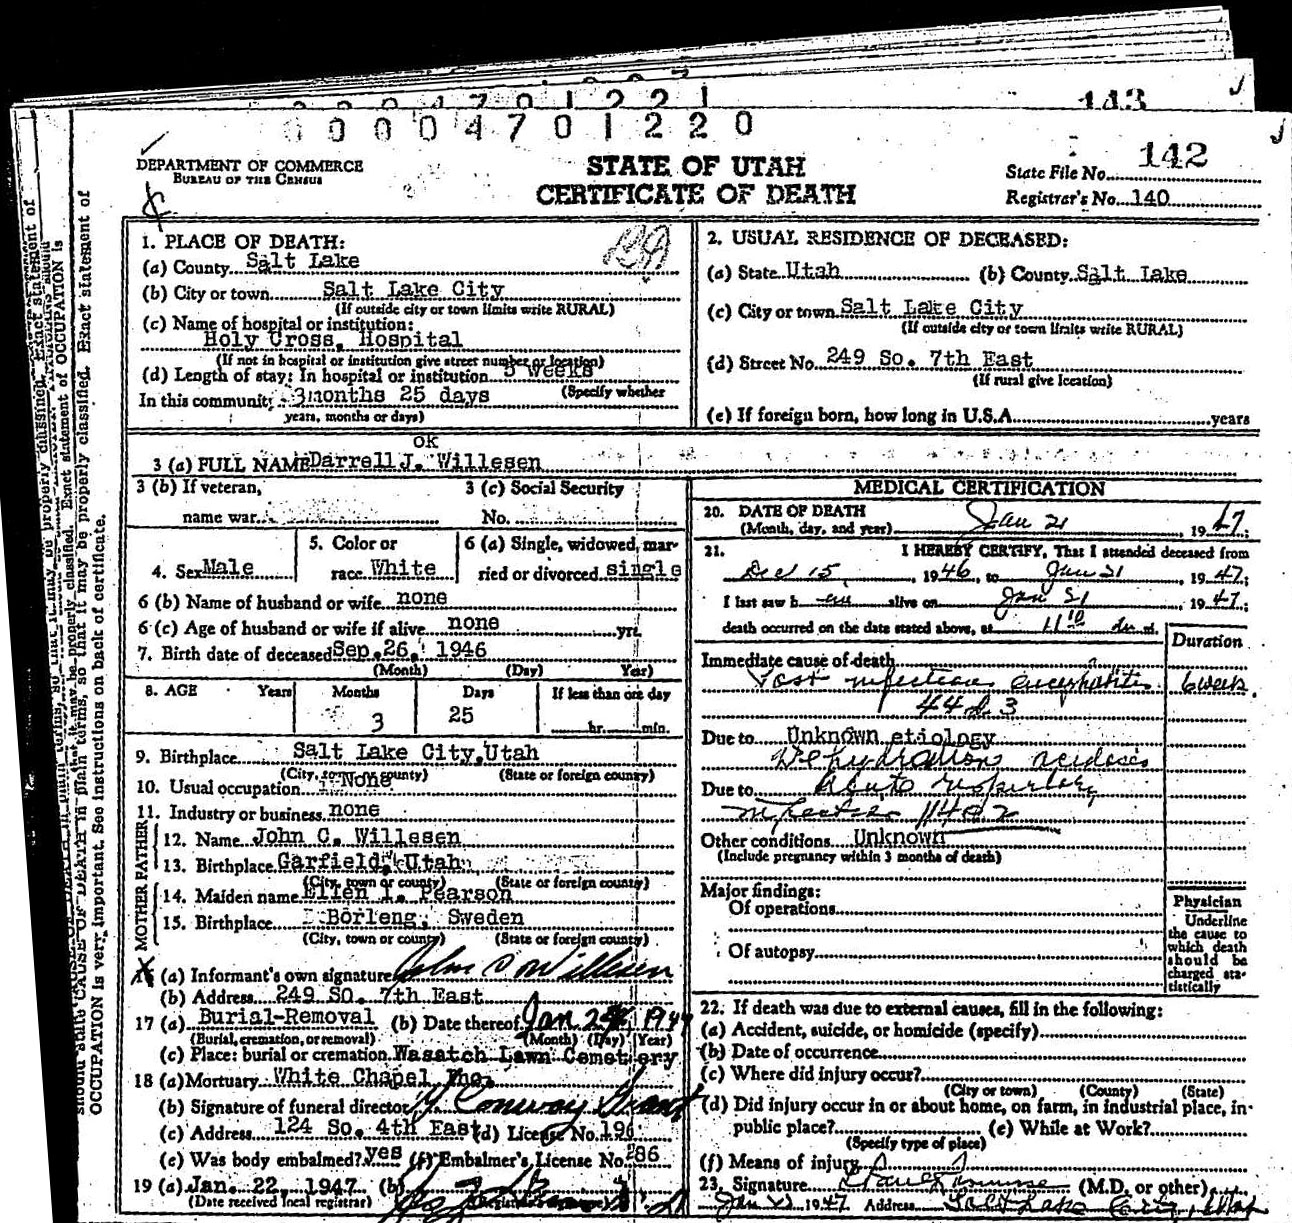 143
0000470122 0
142
DEPARTMENT OF COMMERCE
BUREAU OF THE CENSUS
STATE OF UTAH
CERTIFICATE OF DEATH
State File No.
Registrar's No. 140
1. PLACE OF DEATH:
(a) County Salt Lake
(b) City or town Salt Lake City
(If outside city or town limits write RURAL)
(c) Name of hospital or institution:
Holy Cross, Hospital
(If not in hospital or institution give street number or location)
(d) Length of stay: In hospital or institution 5 weeks
In this community 3months 25 days (Specify whether
years, months or days)
2. USUAL RESIDENCE OF DECEASED:
(a) State Utah (b) County Salt Lake
(c) City or town Salt Lake City
(If outside city or town limits write RURAL)
(d) Street No. 249 So. 7th East
(If rural give location)
(e) If foreign born, how long in U.S.A. years
ok
3 (a) FULL NAME Darrell J. Willesen
3 (b) If veteran,
name war
3 (c) Social Security
No.
4. Sex Male
5. Color or
race White
6 (a) Single, widowed, mar-
ried or divorced single
6 (b) Name of husband or wife none
6 (c) Age of husband or wife if alive none yrs.
7. Birth date of deceased Sep. 26, 1946
(Month) (Day) Year)
8. AGE Years Months Days If less than one day
3 25 hr. min.
9. Birthplace Salt Lake City, Utah
(City, town or county) (State or foreign county)
10. Usual occupation None
11. Industry or business none
FATHER
12. Name John C. Willesen
13. Birthplace Garfield, Utah
(City, town or county) (State or foreign county)
MOTHER
14. Maiden name Ellen I. Pearson
15. Birthplace Borleng, Sweden
(City, town or county) (State or foreign county)
16 (a) Informant's own signature John C Willesen
(b) Address 249 SO. 7th East
17 (a) Burial-Removal (b) Date thereof Jan 1947
(Burial, cremation, or removal) (Month) (Day) (Year)
(c) Place: burial or cremation Wasatch Lawn Cemetery
18 (a) Mortuary White Chapel Inc.
(b) Signature of funeral director
(c) Address 124 So. 4th East (d) License No. 196
(e) Was body embalmed? yes (f) Embalmer's License No. 286
19 (a) Jan. 22, 1947 (b)
(Date received local registrar) (Registrar's signature)
MEDICAL CERTIFICATION
20. DATE OF DEATH
(Month, day, and year) Jan 21, 1947;
21. I HEREBY CERTIFY, That I attended deceased from
Dec 15, 1946, to Jan 21, 1947;
I last saw h em alive on Jan 21, 1947;
death occurred on the date stated above, at 11 10 m.
Duration
Immediate cause of death
Post infectious encephalitis 6 weeks.
Due to Unknown etiology
Dehydration acidosis
Due to Acute respiratory
infection
Other conditions Unknown
(Include pregnancy within 3 months of death)
Major findings:
Of operations
Of autopsy
Physician
Underline
the cause to
which death
should be
charged sta-
tistically
22. If death was due to external causes, fill in the following:
(a) Accident, suicide, or homicide (specify)
(b) Date of occurrence
(c) Where did injury occur?
(City or town) (County) (State)
(d) Did injury occur in or about home, on farm, in industrial place, in
public place? (e) While at Work?
(Specify type of place)
(f) Means of injury
23. Signature (M.D. or other)
1947 Address Salt Lake City, Utah
properly classified. Exact statement of
OCCUPATION is very important. See instructions on back of certificate.